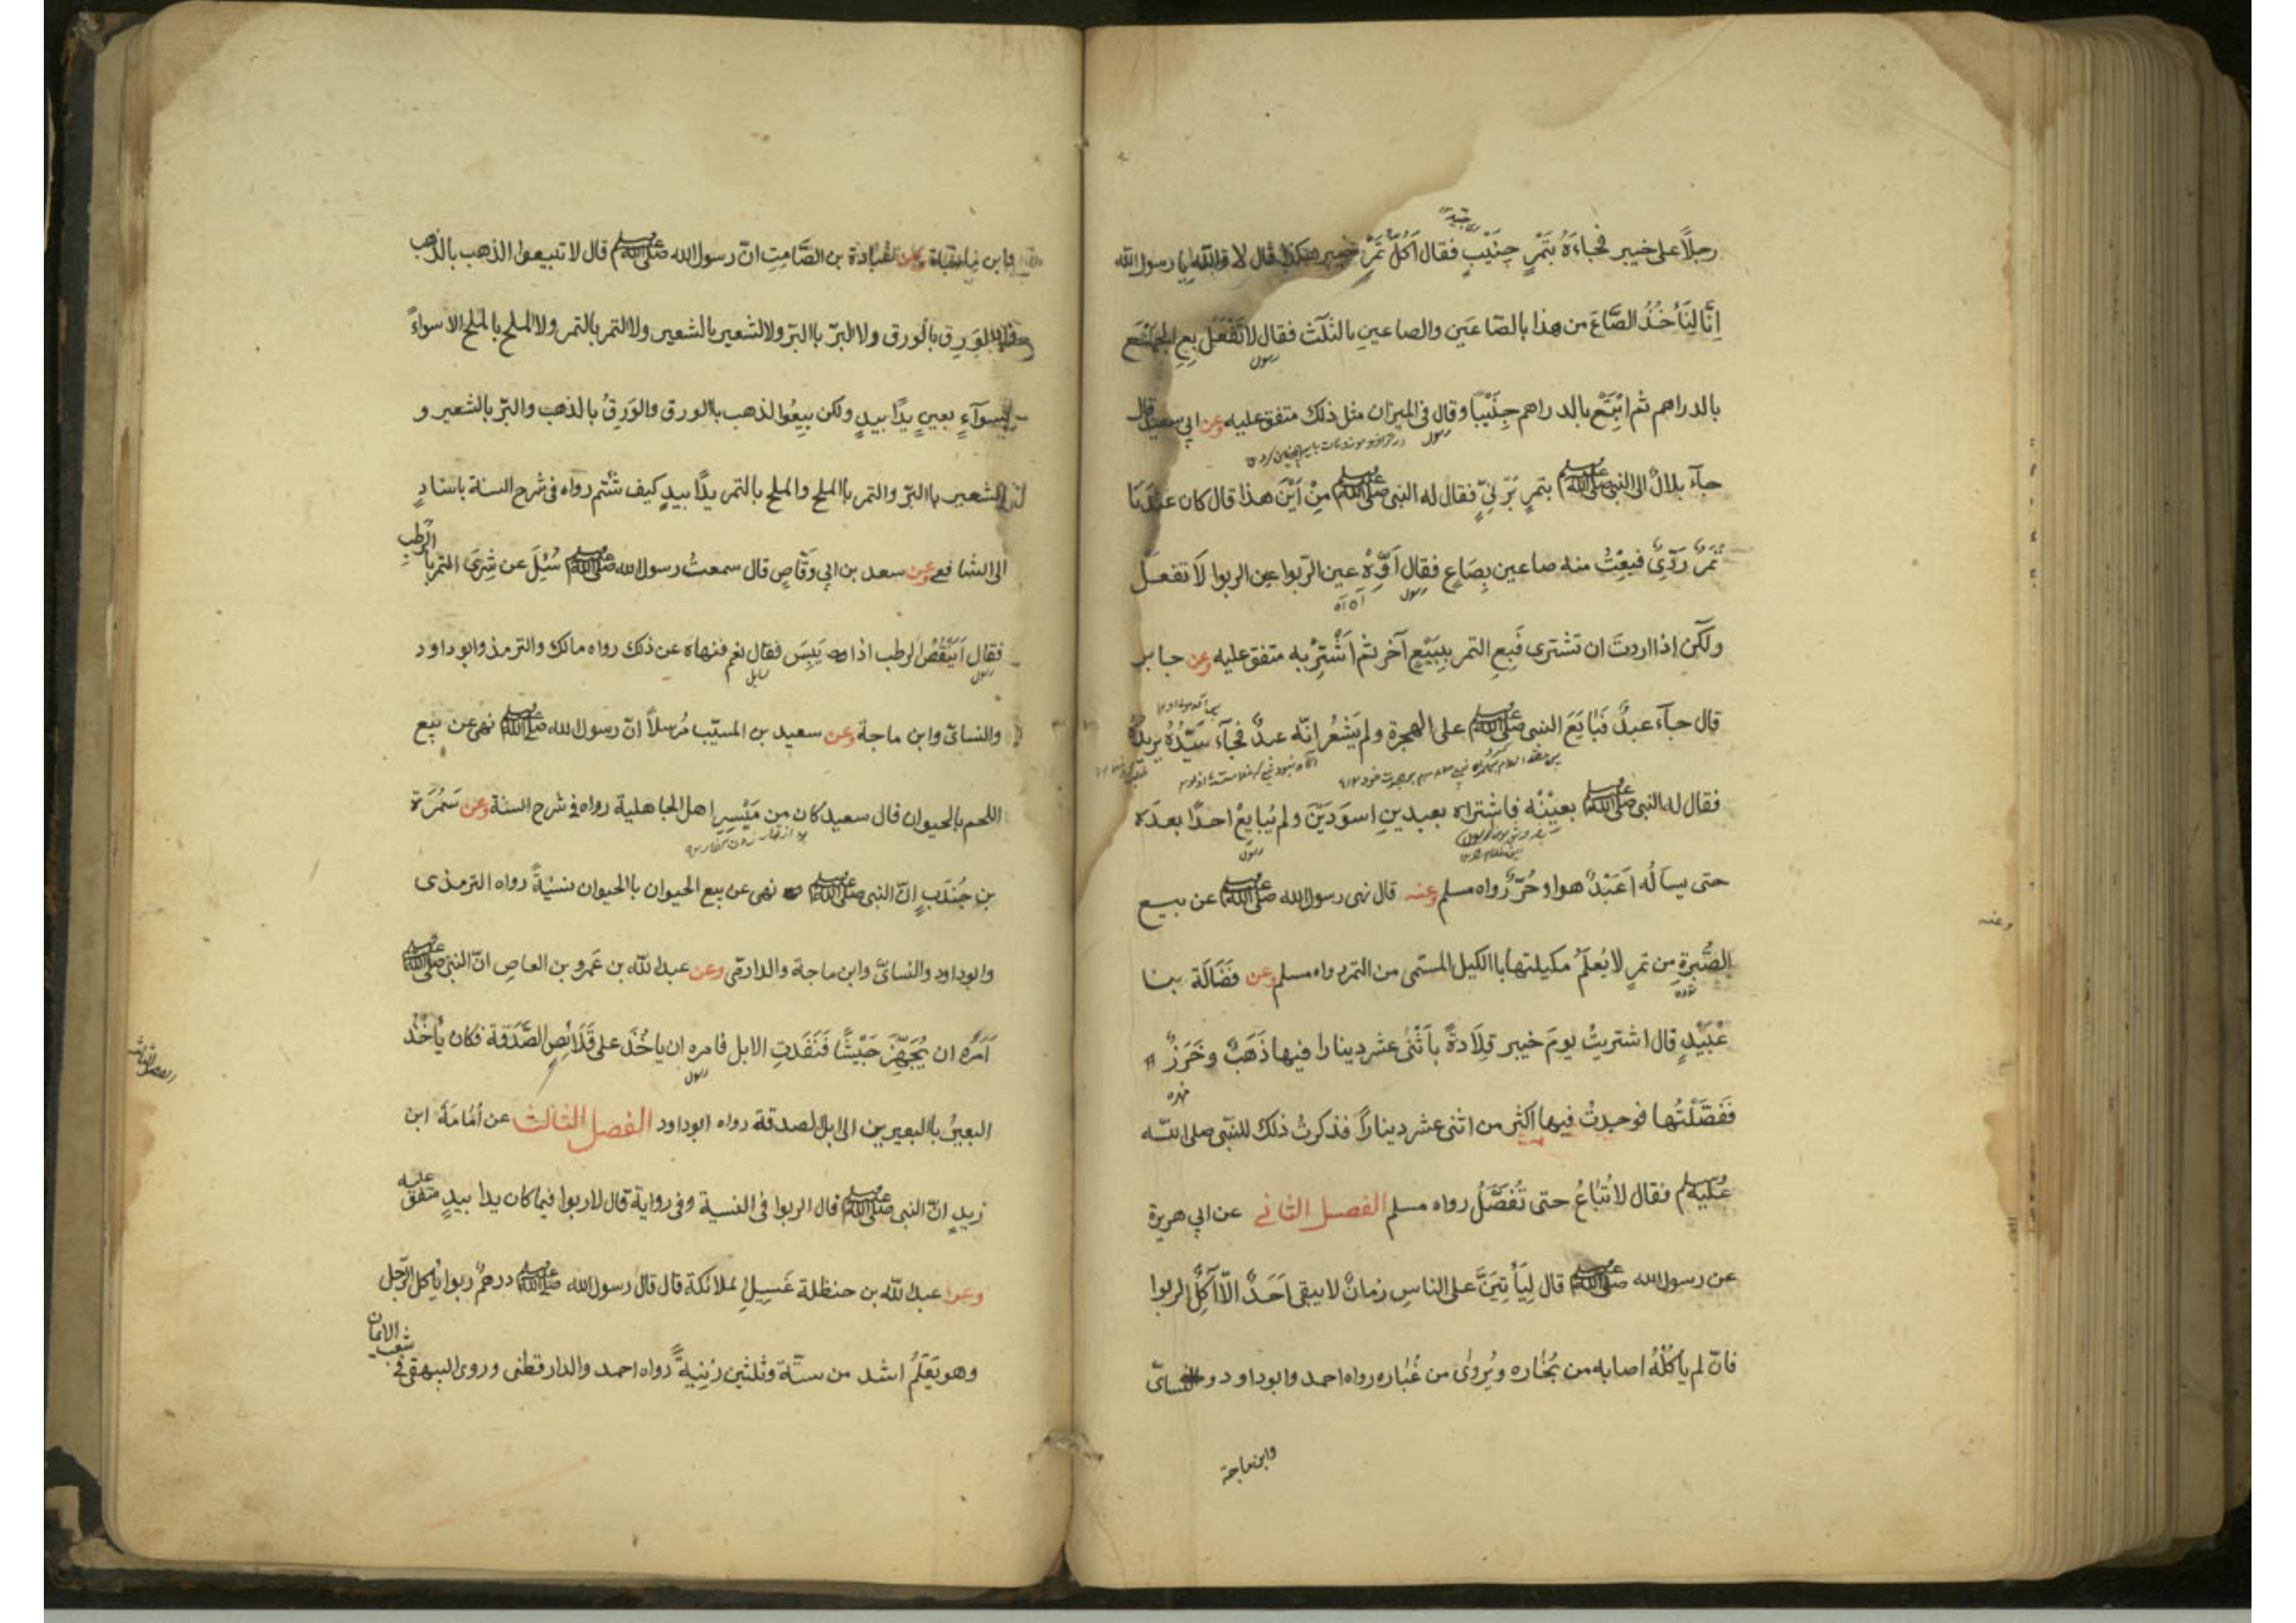 رجلاً على خيبر فجاءَهُ بتَمْرٍ جنيبٍ فقال اَكُلُّ تَمْرِ خيبر هكذا قال لا والله يا رسول الله
اِنَّا لِنَأخُذُ الصَّاعَ من هذا بالصّاعَين والصاعينِ بالثلٰث فقال لا تَفْعَلْ بِعِ الجَمْعَ
رسول
بالدراهم ثم ابْتَعْ بالدراهم جَنِيْبًا وقال فى الميزان مثل ذلك متفق عليه وعن ابى سعيد قال
رسول
جآء بلالٌ الى النبى صلى الله عليه وسلم بتمرٍ بَرْنِيّ فقال له النبى صلى الله عليه وسلم مِنْ اَيْنَ هذا قال كان عندَنا
تَمرٌ رَدِّىٌ فبِعْتُ منه صاعين بِصَاعٍ فقال اَوِّهْ عين الربوا عين الربوا لَا تفعل
رسول
ولٰكن اذا اردتَ ان تشترى فَبِعِ التمر بِبَيْعٍ آخر ثم اشْتَرِ به متفق عليه وعن جابر
قال جآء عبدٌ فَبَايَعَ النبى صلى الله عليه وسلم على الهجرة ولم يَشْعُر انّه عبدٌ فجآء سَيّدُهُ يريدُهُ
فقال له النبى صلى الله عليه وسلم بعْنِيْه فاشتراه بعبدينِ اسوَدَيْنَ ولم يُبَايِعْ احدًا بعدَه
رسول
حتى يسألُه اَعَبْدٌ هو او حُرٌّ رواه مسلم وعنه قال نهى رسول الله صلى الله عليه وسلم عن بيع
وعنه
الصُّبْرةِ من تمرٍ لا يُعلَمُ مكيلتها باالكيل المسمّى من التمر رواه مسلم وعن فَضَالَة بنا
توده
عُبَيْدٍ قال اشتريتُ يومَ خيبر قِلَادةً باَثْنٰى عشر دينارا فيها ذَهَبٌ وخَرَزٌ
مهره
فَفَصَّلْتُها فوجدتُ فيها اكثر من اثنى عشر ديناراً فذكرتُ ذلك للنبّى صلى الله
عليه وسلم فقال لا تُبَاعُ حتى تُفَصَّلُ رواه مسلم الفصل الثانى عن ابى هريرة
عن رسول الله صلى الله عليه وسلم قال لِيَأْتِيَنَّ على الناسِ زمانٌ لا يبقى اَحَدٌ الّا آكِلُ الربوا
فانّ لم يأكُلْهُ اصابه من بُخَاره ويُروٰى من غُبَاره رواه احمد وابو داود والنسائىّ
وابن ماجة
وابن ماجة وعن عُبادة بن الصَّامِتِ انّ رسول الله صلى الله عليه وسلم قال لا تبيعوا الذهب بالذهب
ولا الوَرِق بالورق ولا البرّ باالبرّ ولا الشعير بالشعير ولا التمر بالتمر ولا الملح بالملح الا سواءً
بسوآءٍ بعينٍ يدًا بيدٍ ولكن بيعُوا لذهب باالورق والوَرِقُ بالذهب والبرّ بالشعير و
الشعير باالبرّ والتمر باالملح والملح بالتمر يدًا بيدٍ كيف شئتم رواه فى شرح السنة باسنادٍ
الى الشافعى وعن سعد بن ابى وقّاصٍ قال سمعتُ رسول الله صلى الله عليه وسلم سُئِلَ عن شِرَى التمر با الرُطَبِ
فقال اَيَنْقُصُ الرطب اذا يَبِسَ فقال نعم فنهاه عن ذلك رواه مالك والترمذ وابو داود
رسول سايل
والنسائىّ وابن ماجة وعن سعيد بن المسيّب مُرسلاً انّ رسول الله صلى الله عليه وسلم نهى عن بيع
اللحم بالحيوان قال سعيد كان من مَيْسِرِ اهل الجاهلية رواه فى شرح السنة وعن سَمُرَة
بن جُنْدَبٍ انّ النبى صلى الله عليه وسلم نهى عن بيع الحيوان باالحيوان نسيئةً رواه الترمذى
وابو داود والنسائىّ وابن ماجة والدارمّى وعن عبد الله بن عَمرو بن العاصِ انّ النبىّ صلى الله عليه وسلم
اَمَرَهُ ان يُجَهِّزَ جَيْشًا فَنَفَدَتِ الابل فامره ان ياخُذَ على قَلَائِصِ الصَّدَقة فكان يأخُذُ
رسول
البعيرُ باالبعيرين الى ابل الصدقة رواه ابو داود الفصل الثالث عن اُسَامَةَ ابن
الفصل الثالث
زيدٍ انّ النبى صلى الله عليه وسلم قال الربوا فى النسية وفى رواية قال لا ربوا فيما كان يدا بيدٍ متفق عليه
وعن عبد الله بن حنظلة غَسِيلِ لملائكة قال قال رسول الله صلى الله عليه وسلم درهمُ ربوا يأكل الرّجل
وهو يَعْلَمُ اشد من ستّة وثلثين زنيةً رواه احمد والدار قطنى وروى البيهقى فى شعب الايمان